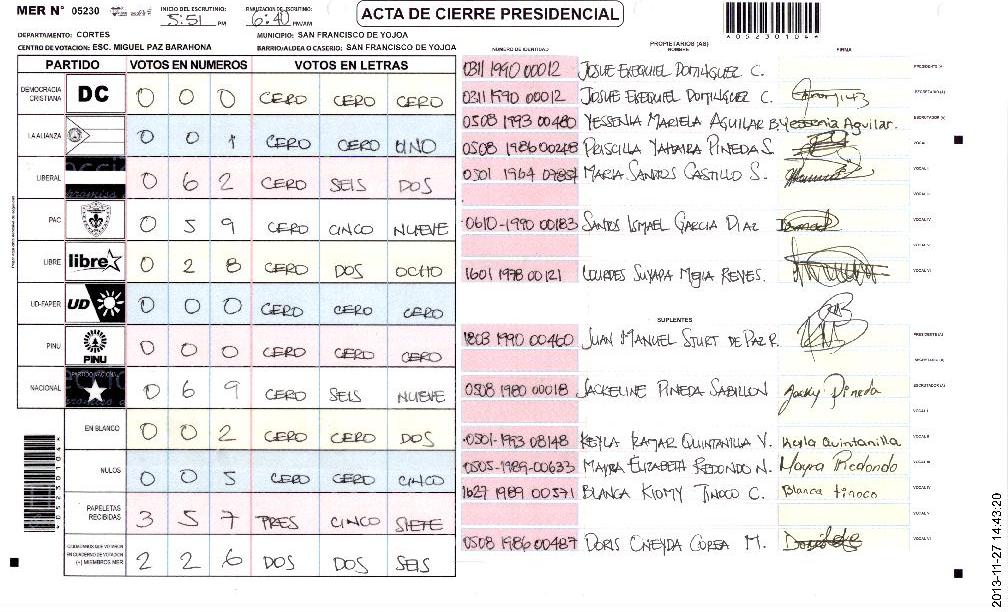 MER N° 05230
INICIO DEL ESCRUTINIO: 5:51 PM
FINALIZACION DE ESCRUTINIO: 6:40 PM/AM
ACTA DE CIERRE PRESIDENCIAL
A05230104A
DEPARTAMENTO: CORTES
MUNICIPIO: SAN FRANCISCO DE YOJOA
CENTRO DE VOTACION: ESC. MIGUEL PAZ BARAHONA
BARRIO/ALDEA O CASERIO: SAN FRANCISCO DE YOJOA
PARTIDO VOTOS EN NUMEROS VOTOS EN LETRAS
DEMOCRACIA CRISTIANA DC 0 0 0 CERO CERO CERO
LA ALIANZA 0 0 1 CERO CERO UNO
LIBERAL 0 6 2 CERO SEIS DOS
PAC 0 5 9 CERO CINCO NUEVE
LIBRE libre 0 2 8 CERO DOS OCHO
UD-FAPER UD 0 0 0 CERO CERO CERO
PINU PINU 0 0 0 CERO CERO CERO
NACIONAL 0 6 9 CERO SEIS NUEVE
EN BLANCO 0 0 2 CERO CERO DOS
NULOS 0 0 5 CERO CERO CINCO
PAPELETAS RECIBIDAS 3 5 7 TRES CINCO SIETE
CIUDADANOS QUE VOTARON EN CUADERNO DE VOTACION (+) MIEMBROS MER 2 2 6 DOS DOS SEIS
A05230104A
PROPIETARIOS (AS)
NUMERO DE IDENTIDAD NOMBRE FIRMA
0311 1990 00012 JOSUE EXEQUIEL DOMINGUEZ C. PRESIDENTE (A)
0311 1990 00012 JOSUE EXEQUIEL DOMINGUEZ C. SECRETARIO (A)
0508 1993 00480 YESSENIA MARIELA AGUILAR B. Yessenia Aguilar. ESCRUTADOR (A)
0508 1986 00248 PRISCILLA YAHAIRA PINEDA S. VOCAL I
0301 1964 MARIA SANTOS CASTILLO S. VOCAL II
VOCAL III
0610-1990 00183 SANTOS ISMAEL GARCIA DIAZ VOCAL IV
VOCAL V
1601 1978 00121 LOURDES SUYAPA MEJIA REYES. VOCAL VI
SUPLENTES
1803 1990 00460 JUAN MANUEL STURT DE PAZ R. PRESIDENTE (A)
SECRETARIO (A)
0508 1980 00018 JACKELINE PINEDA SABILLON Jacky Pineda ESCRUTADOR (A)
VOCAL I
0501-1993 08148 KEYLA QUINTANILLA V. Keyla Quintanilla VOCAL II
0505-1989-00633 MAYRA ELIZABETH REDONDO N. Mayra Redondo VOCAL III
1627 1989 00571 BLANCA KIOMY TINOCO C. Blanca tinoco VOCAL IV
VOCAL V
0508 1986 00487 DORIS ONEYDA COREA M. VOCAL VI
2013-11-27 14:43:20